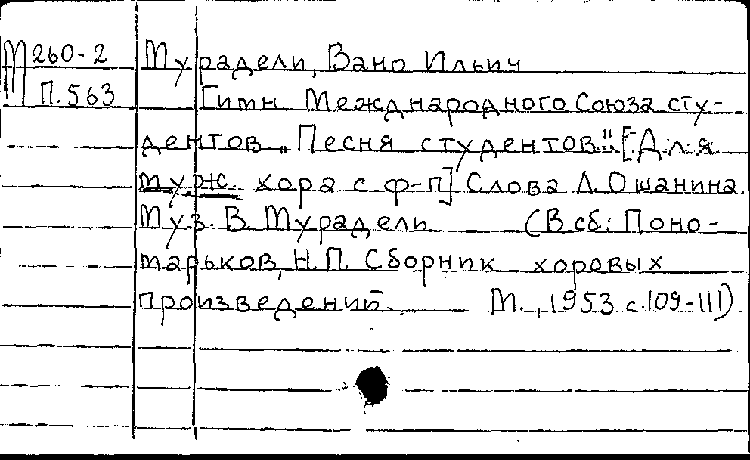 М 260-2
П. 563
Мурадели, Вано Ильич
Гимн Международного Союза сту-
дентов „Песня студентов". [Для
муж. хора с ф-п] Слова Л. Ошанина.
Муз. В. Мурадели (В сб: Поно-
марьков, Н.П. Сборник хоровых
произведений. М., 1953 с.109-111)